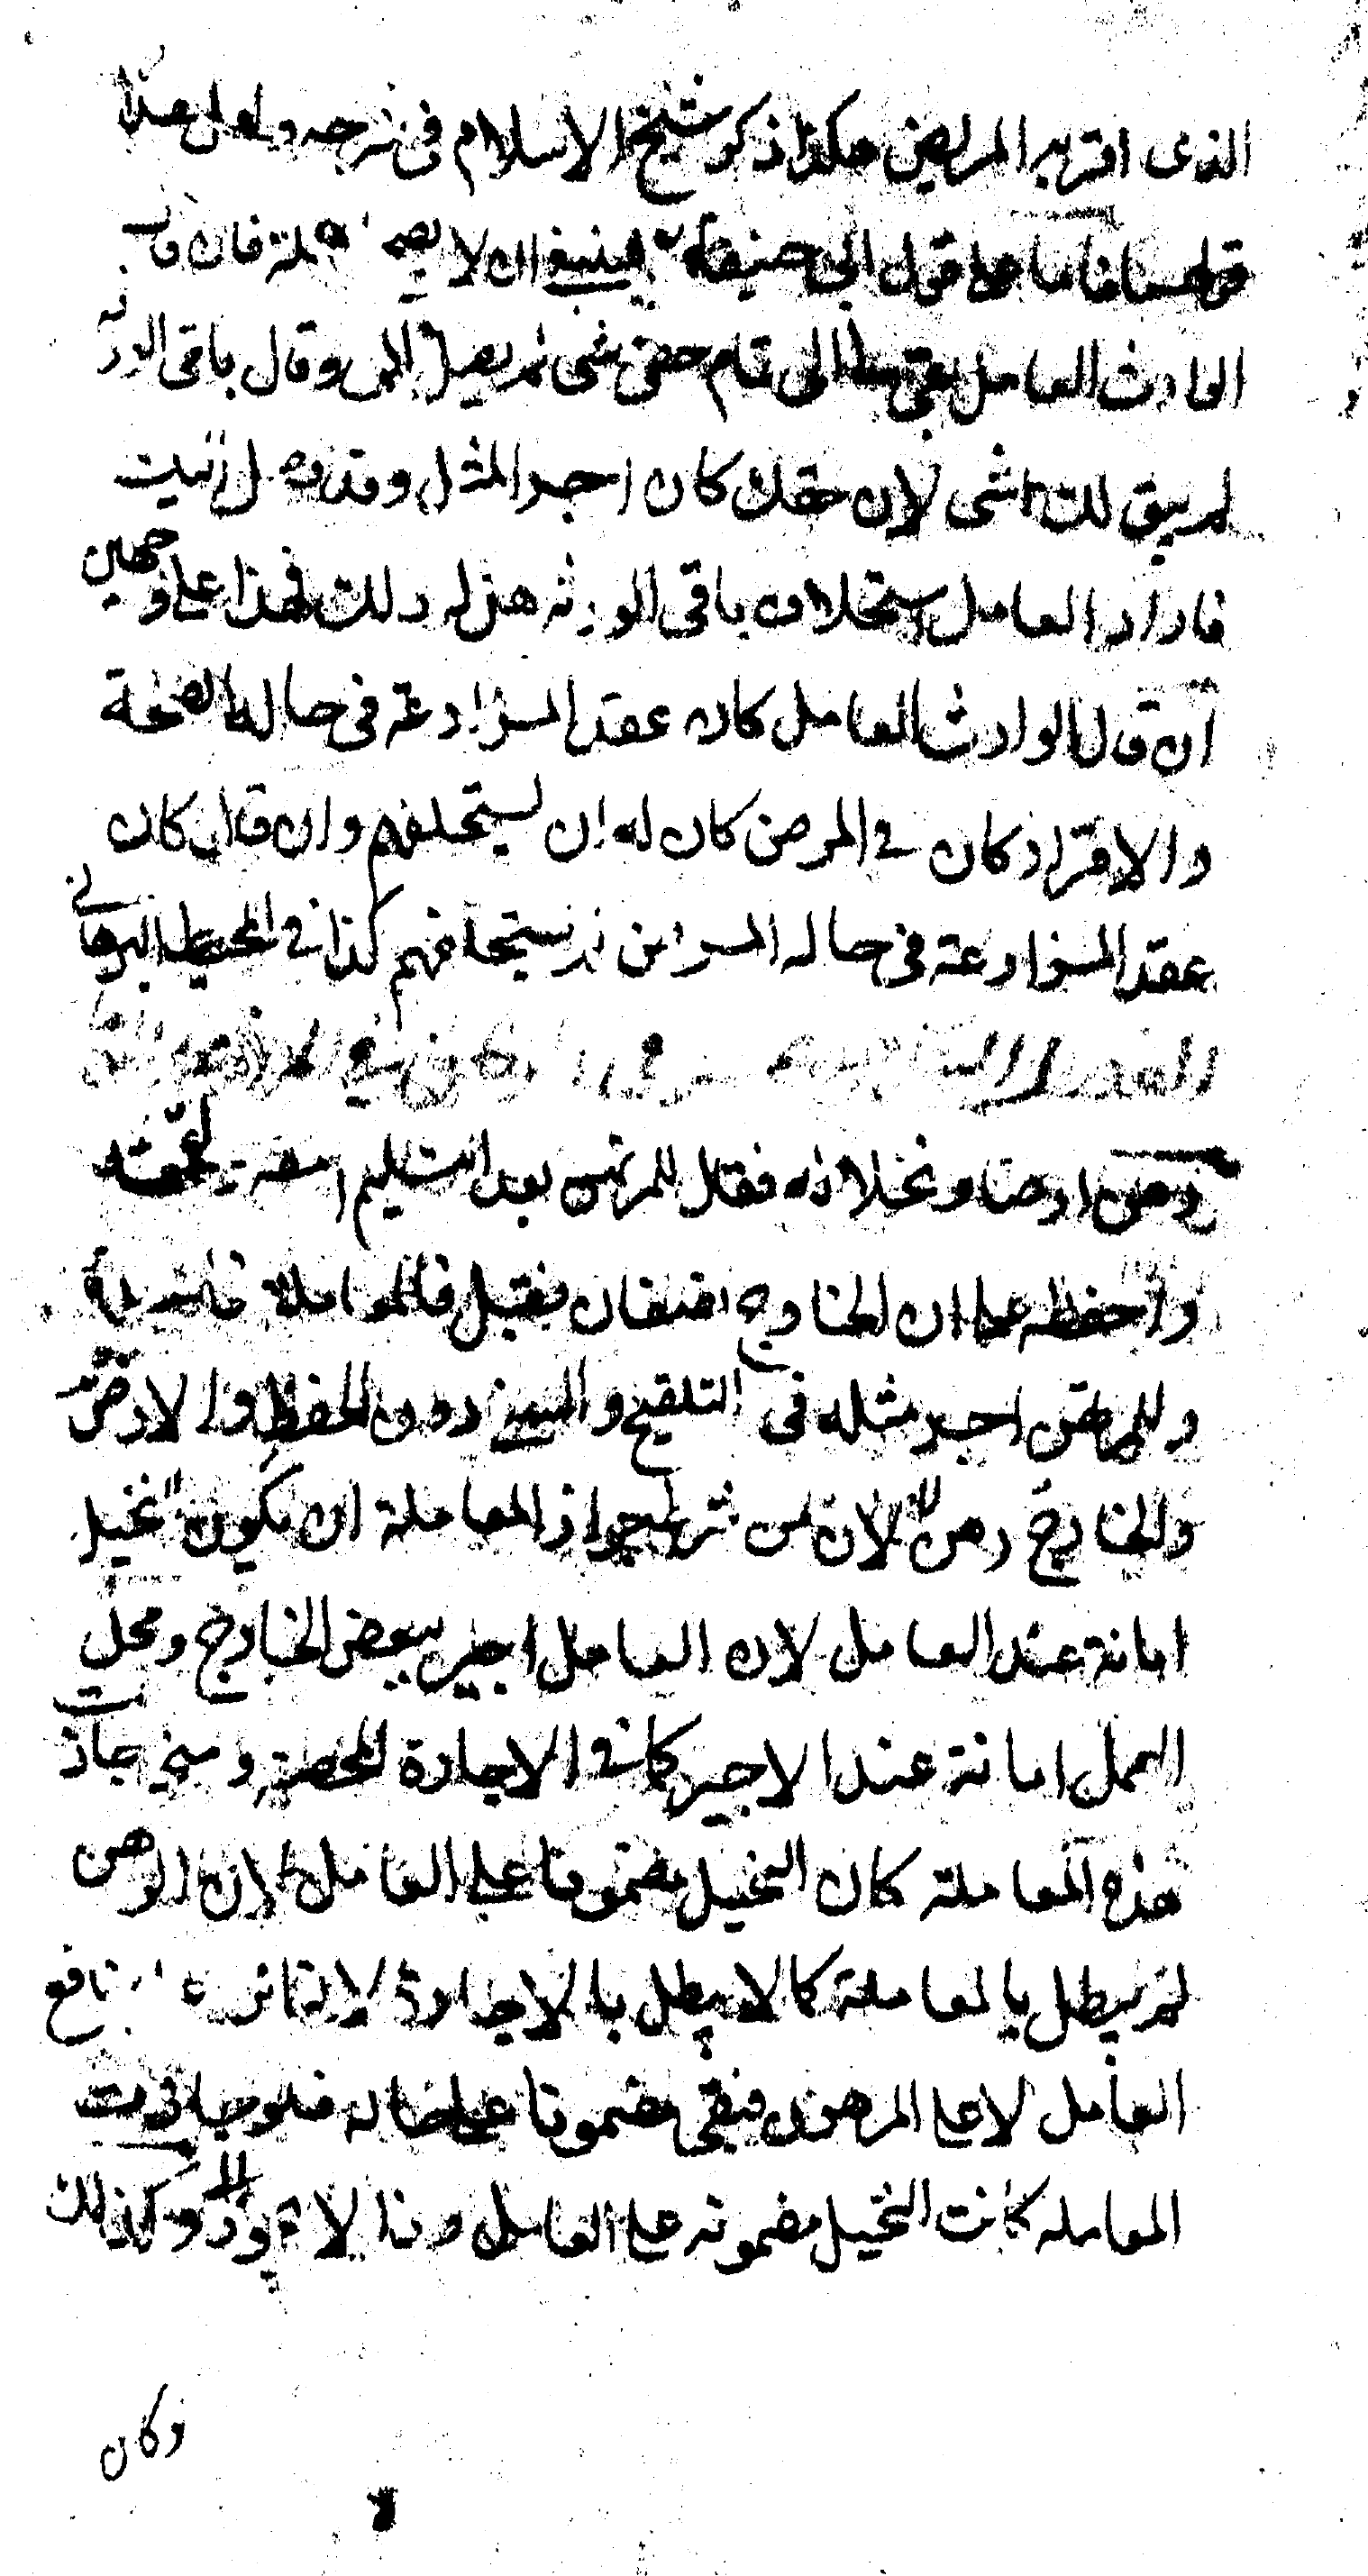 الذى اقر به المريض هكذا ذكر شيخ الاسلام فى شرحه ولعل هذا
قولهما فاما على قول ابى حنيفة فينبغى ان لا يصح فان قال
الوارث العامل بقى لى الى تمام حقى شى لم يصل الى وقال باقى الورثه
لم يبق لك شى لان حقك كان اجر المثل وقد وصل اليك
فاراد العامل استحلاف باقى الورثه هل له ذلك فهذا على وجهين
ان قال الوارث العامل كان عقد المزارعة فى حالة الصحة
والاقرار كان فى المرض كان له ان يستحلفهم وان قال كان
عقد المزارعة فى حاله المرض لم يستحلفهم كذا فى المحيط البرهانى
رهن ارضا ونخلا له فقال للمرتهن بعد التسليم اسقه ولقحه
واحفظه على ان الخارج نصفان فقبل فالمعاملة فاسدة
وللمرتهن اجر مثله فى التلقيح والسقى دون الحفظ والارض
والخارج رهن لان من شرط جواز المعاملة ان يكون النخيل
امانة عند العامل لان العامل اجير ببعض الخارج ومحل
العمل امانة عند الاجير كما فى الاجارة المحضة ومتى جازت
هذه المعاملة كان النخيل مضمونا على العامل لان الرهن
لم يبطل بالمعاملة كما لا يبطل بالاجارة لانها منافع
العامل لا على المرهون فبقى مضمونا على حاله فلو جازت
المعامله كانت النخيل مضمونه على العامل وذا لا يجوز وكذلك
وكان